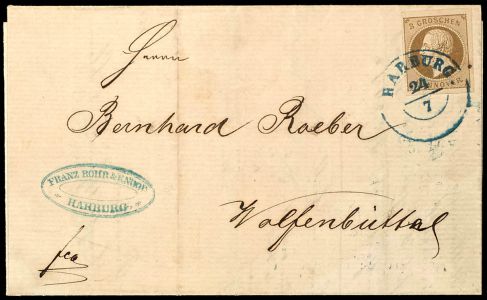 3 GROSCHEN
HANNOVER
HARBURG
24
7
Herrn
Bernhard Roeber
Wolfenbüttel
FRANZ BOHR & KNOOP
HARBURG.
fco